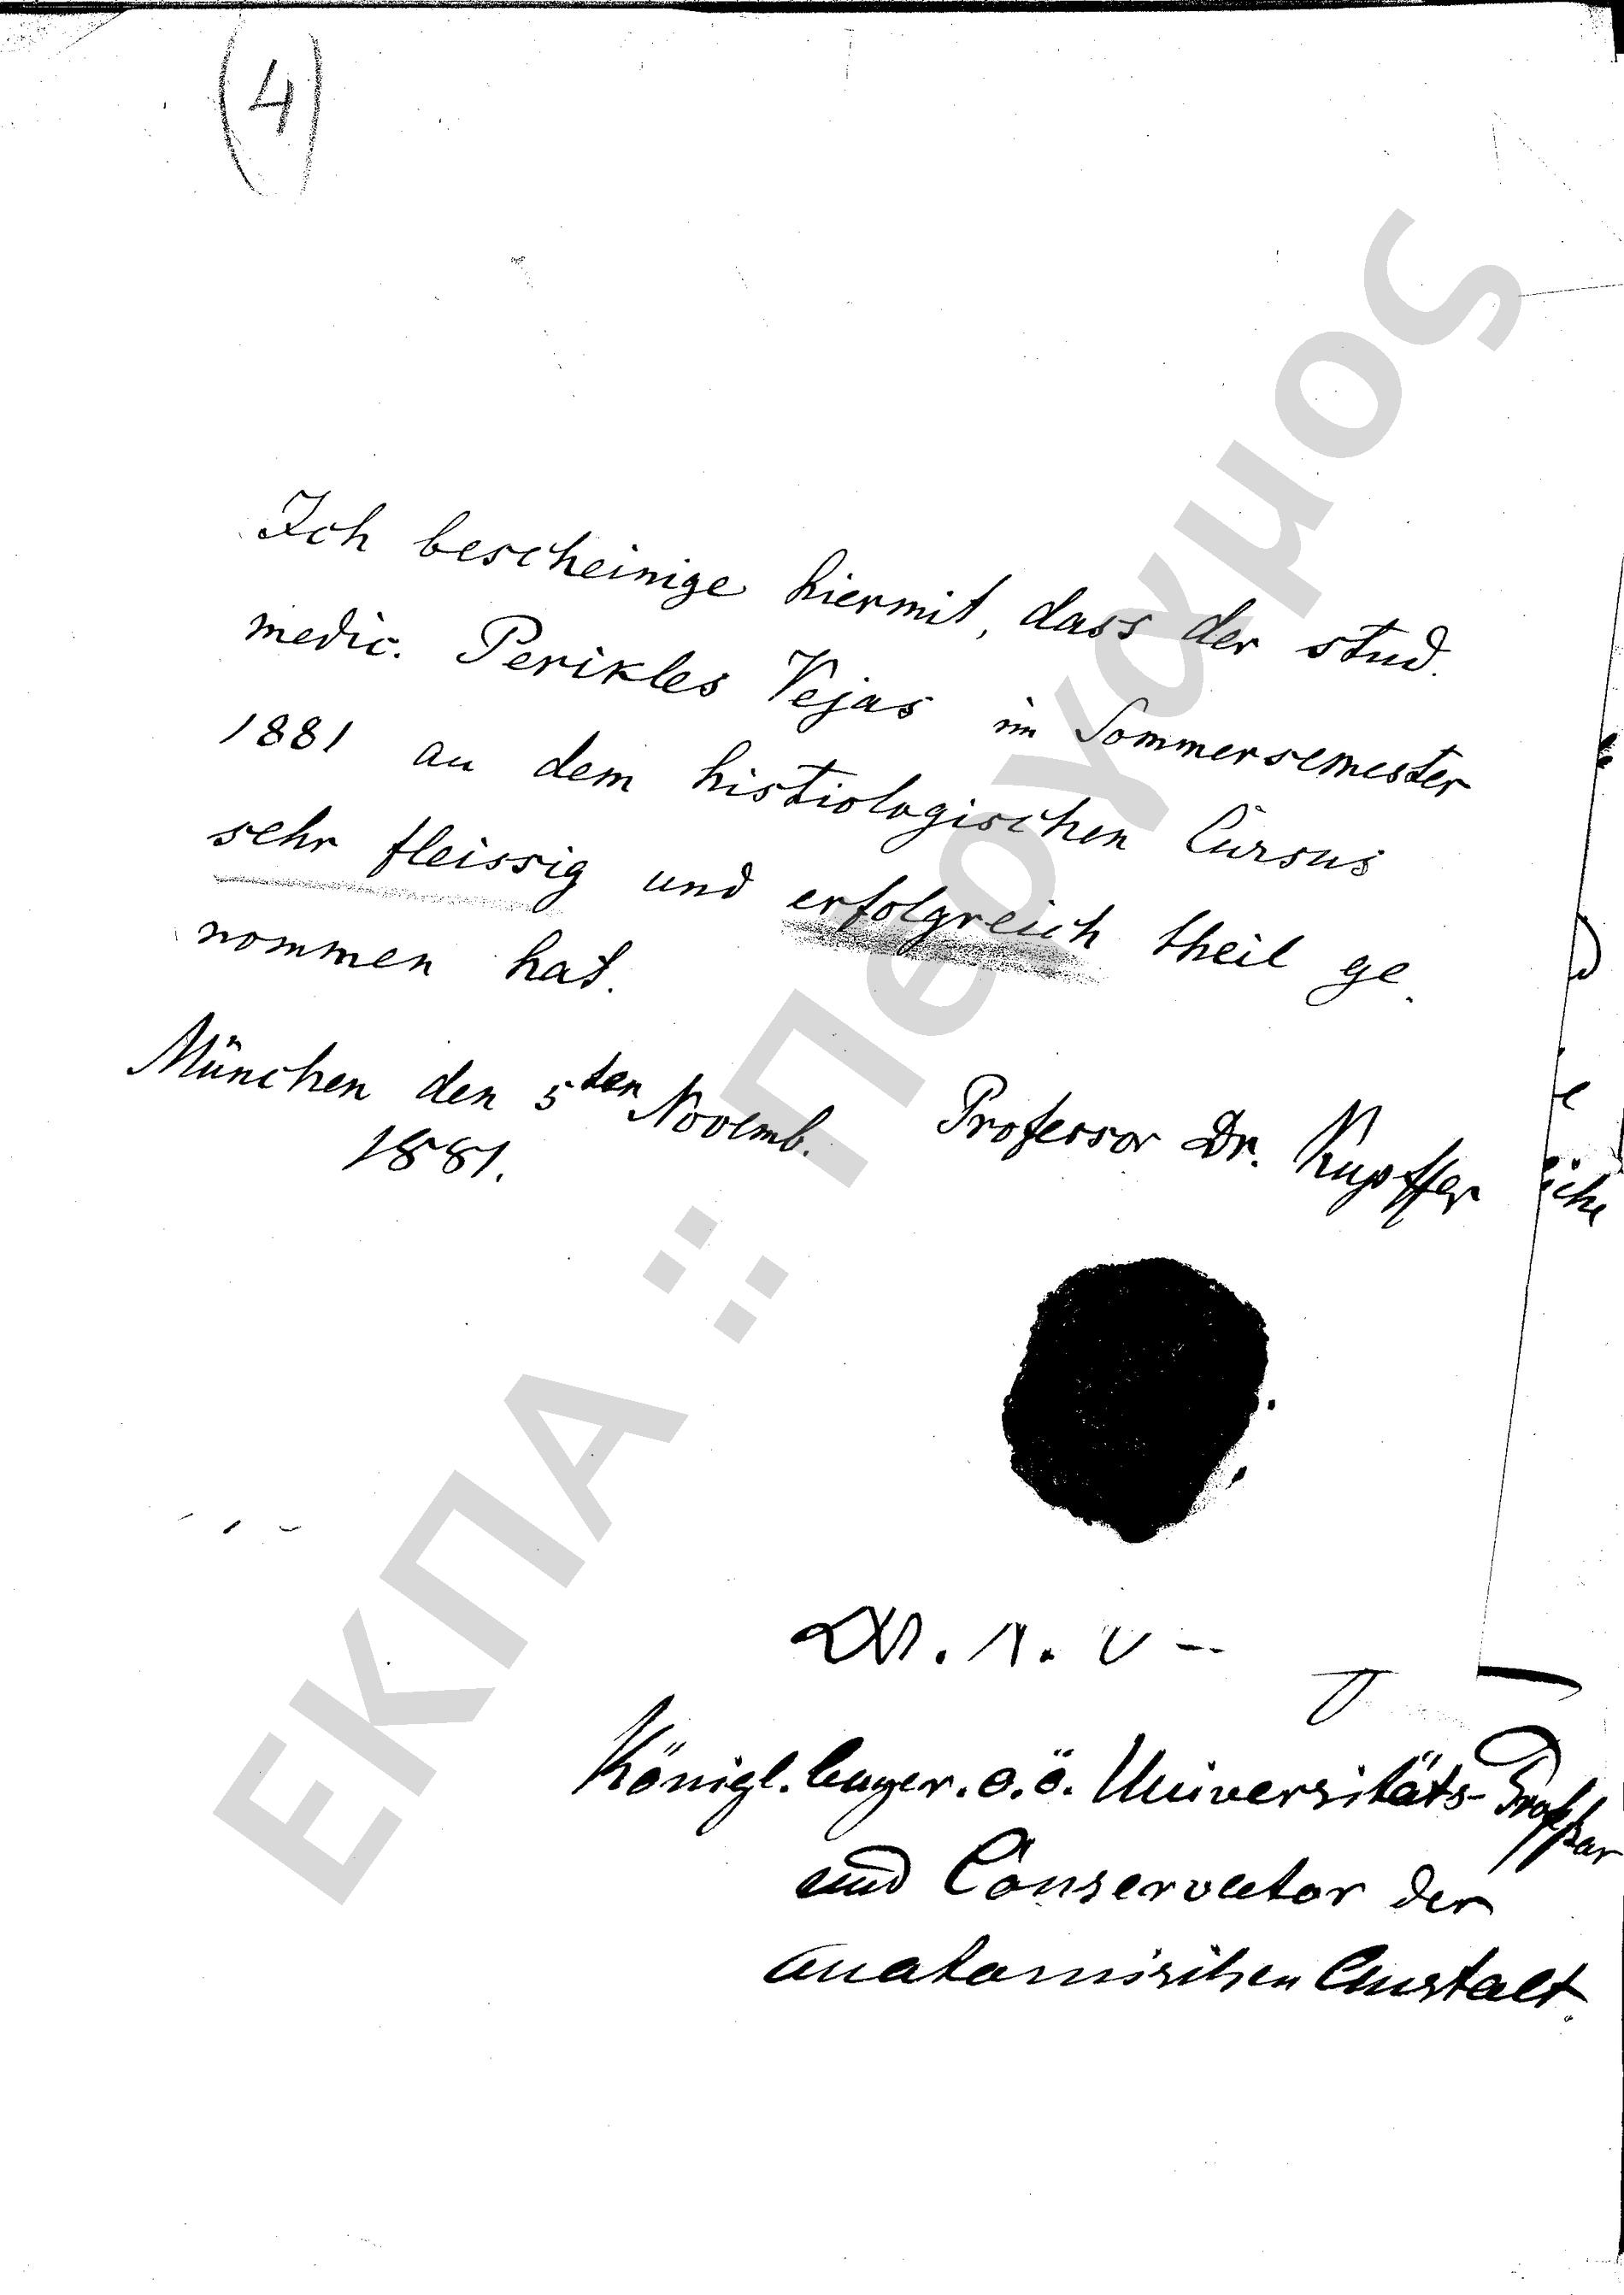 (4)
Ich bescheinige hiermit, dass der stud.
medic. Perikles Vejas im Sommersemester
1881 an dem histiologischen Cursus
sehr fleissig und erfolgreich theil ge
nommen hat.
München den 5ten Novemb.
1881.
Professor Dr. Kupffer
Königl. bayer. o.ö. Universitäts-Professor
und Conservator der
anatomischen Anstalt.
ΕΚΠΑ :: Πέργαμος